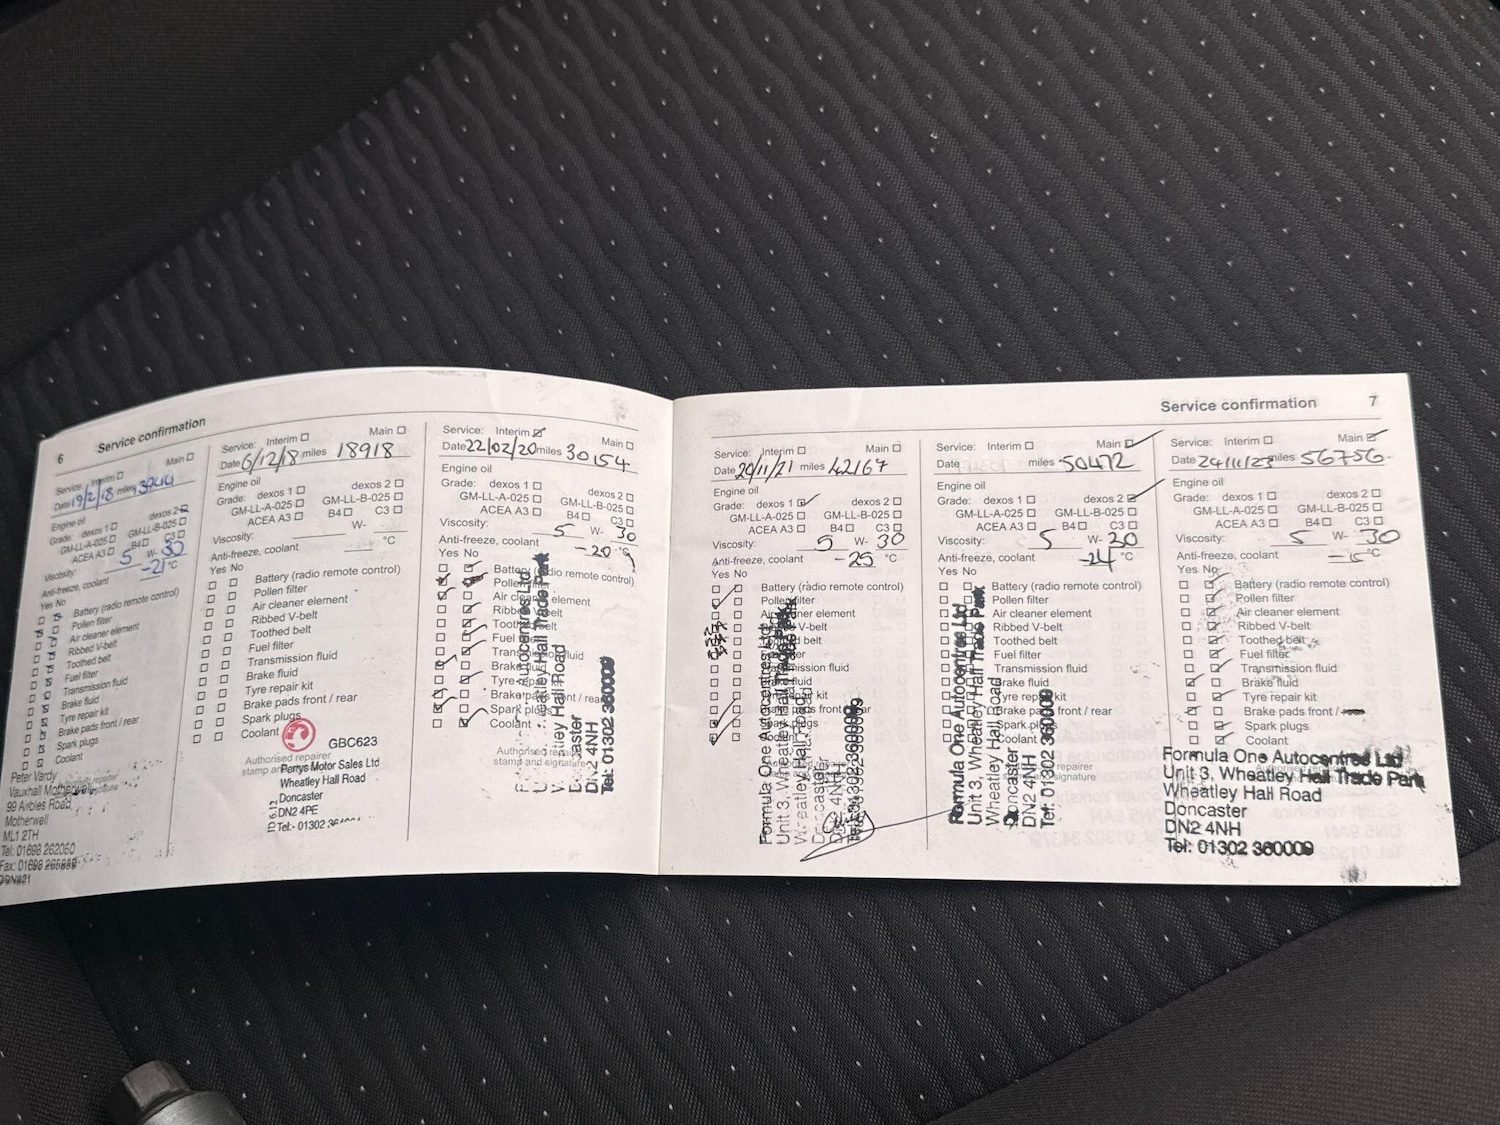 6 Service confirmation
Service: Interim ☐ Main ☐
Date 19/2/18 miles
Engine oil
Grade: dexos 1 ☐ dexos 2 ☑
GM-LL-A-025 ☐ GM-LL-B-025 ☐
ACEA A3 ☐ B4 ☐ C3 ☐
Viscosity: 5 W- 30
Anti-freeze, coolant -21 °C
Yes No
Battery (radio remote control)
Pollen filter
Air cleaner element
Ribbed V-belt
Toothed belt
Fuel filter
Transmission fluid
Brake fluid
Tyre repair kit
Brake pads front / rear
Spark plugs
Coolant
Peter Vardy
Vauxhall Motherwell
99 Airbles Road
Motherwell
ML1 2TH
Tel: 01698 262060
Fax: 01698
Service: Interim ☐ Main ☐
Date 6/12/18 miles 18918
Engine oil
Grade: dexos 1 ☐ dexos 2 ☐
GM-LL-A-025 ☐ GM-LL-B-025 ☐
ACEA A3 ☐ B4 ☐ C3 ☐
Viscosity: W-
Anti-freeze, coolant °C
Yes No
Battery (radio remote control)
Pollen filter
Air cleaner element
Ribbed V-belt
Toothed belt
Fuel filter
Transmission fluid
Brake fluid
Tyre repair kit
Brake pads front / rear
Spark plugs
Coolant
GBC623
Authorised repairer
stamp
Perrys Motor Sales Ltd
Wheatley Hall Road
Doncaster
DN2 4PE
Tel:- 01302
Service: Interim ☑ Main ☐
Date 22/02/20 miles 30154
Engine oil
Grade: dexos 1 ☐ dexos 2 ☐
GM-LL-A-025 ☐ GM-LL-B-025 ☐
ACEA A3 ☐ B4 ☐ C3 ☐
Viscosity: 5 W- 30
Anti-freeze, coolant -20 °C
Yes No
Battery (radio remote control)
Pollen filter
Air cleaner element
Ribbed V-belt
Toothed belt
Fuel
Transmission fluid
Brake fluid
Tyre repair kit
Brake pads front / rear
Spark plugs
Coolant
Authorised repairer
stamp and signature
Autocentres Ltd
Wheatley Hall Trade Park
Wheatley Hall Road
Doncaster
DN2 4NH
Tel: 01302 360009
Service confirmation 7
Service: Interim ☐ Main ☐
Date 20/11/21 miles 42167
Engine oil
Grade: dexos 1 ☑ dexos 2 ☐
GM-LL-A-025 ☐ GM-LL-B-025 ☐
ACEA A3 ☐ B4 ☐ C3 ☐
Viscosity: 5 W- 30
Anti-freeze, coolant -25 °C
Yes No
Battery (radio remote control)
Pollen filter
Air cleaner element
Ribbed V-belt
Toothed belt
Transmission fluid
Brake fluid
Tyre repair kit
Brake pads front / rear
Spark plugs
Coolant
Formula One Autocentres Ltd
Unit 3, Wheatley Hall Trade Park
Wheatley Hall Road
Doncaster
DN2 4NH
Tel: 01302 360009
Service: Interim ☐ Main ☑
Date miles 50472
Engine oil
Grade: dexos 1 ☐ dexos 2 ☑
GM-LL-A-025 ☐ GM-LL-B-025 ☐
ACEA A3 ☐ B4 ☐ C3 ☐
Viscosity: 5 W- 20
Anti-freeze, coolant -24 °C
Yes No
Battery (radio remote control)
Pollen filter
Air cleaner element
Ribbed V-belt
Toothed belt
Fuel filter
Transmission fluid
Brake fluid
Tyre repair kit
Brake pads front / rear
Spark plugs
Coolant
repairer
signature
Formula One Autocentres Ltd
Unit 3, Wheatley Hall Trade Park
Wheatley Hall Road
Doncaster
DN2 4NH
Tel: 01302 360009
Service: Interim ☐ Main ☑
Date 24/11/23 miles 56756
Engine oil
Grade: dexos 1 ☐ dexos 2 ☐
GM-LL-A-025 ☐ GM-LL-B-025 ☐
ACEA A3 ☐ B4 ☐ C3 ☐
Viscosity: 5 W- 30
Anti-freeze, coolant °C
Yes No
Battery (radio remote control)
Pollen filter
Air cleaner element
Ribbed V-belt
Toothed belt
Fuel filter
Transmission fluid
Brake fluid
Tyre repair kit
Brake pads front /
Spark plugs
Coolant
Formula One Autocentres Ltd
Unit 3, Wheatley Hall Trade Park
Wheatley Hall Road
Doncaster
DN2 4NH
Tel: 01302 360009